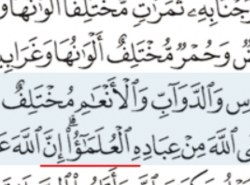 ثَمَرَٰتٍ مُّخْتَلِفًا أَلْوَٰنُهَا وَ
وَحُمْرٌ مُّخْتَلِفٌ أَلْوَٰنُهَا وَغَرَابِ
وَٱلدَّوَآبِّ وَٱلْأَنْعَٰمِ مُخْتَلِفٌ
ٱللَّهَ مِنْ عِبَادِهِ ٱلْعُلَمَٰٓؤُا۟ إِنَّ ٱللَّهَ عَ